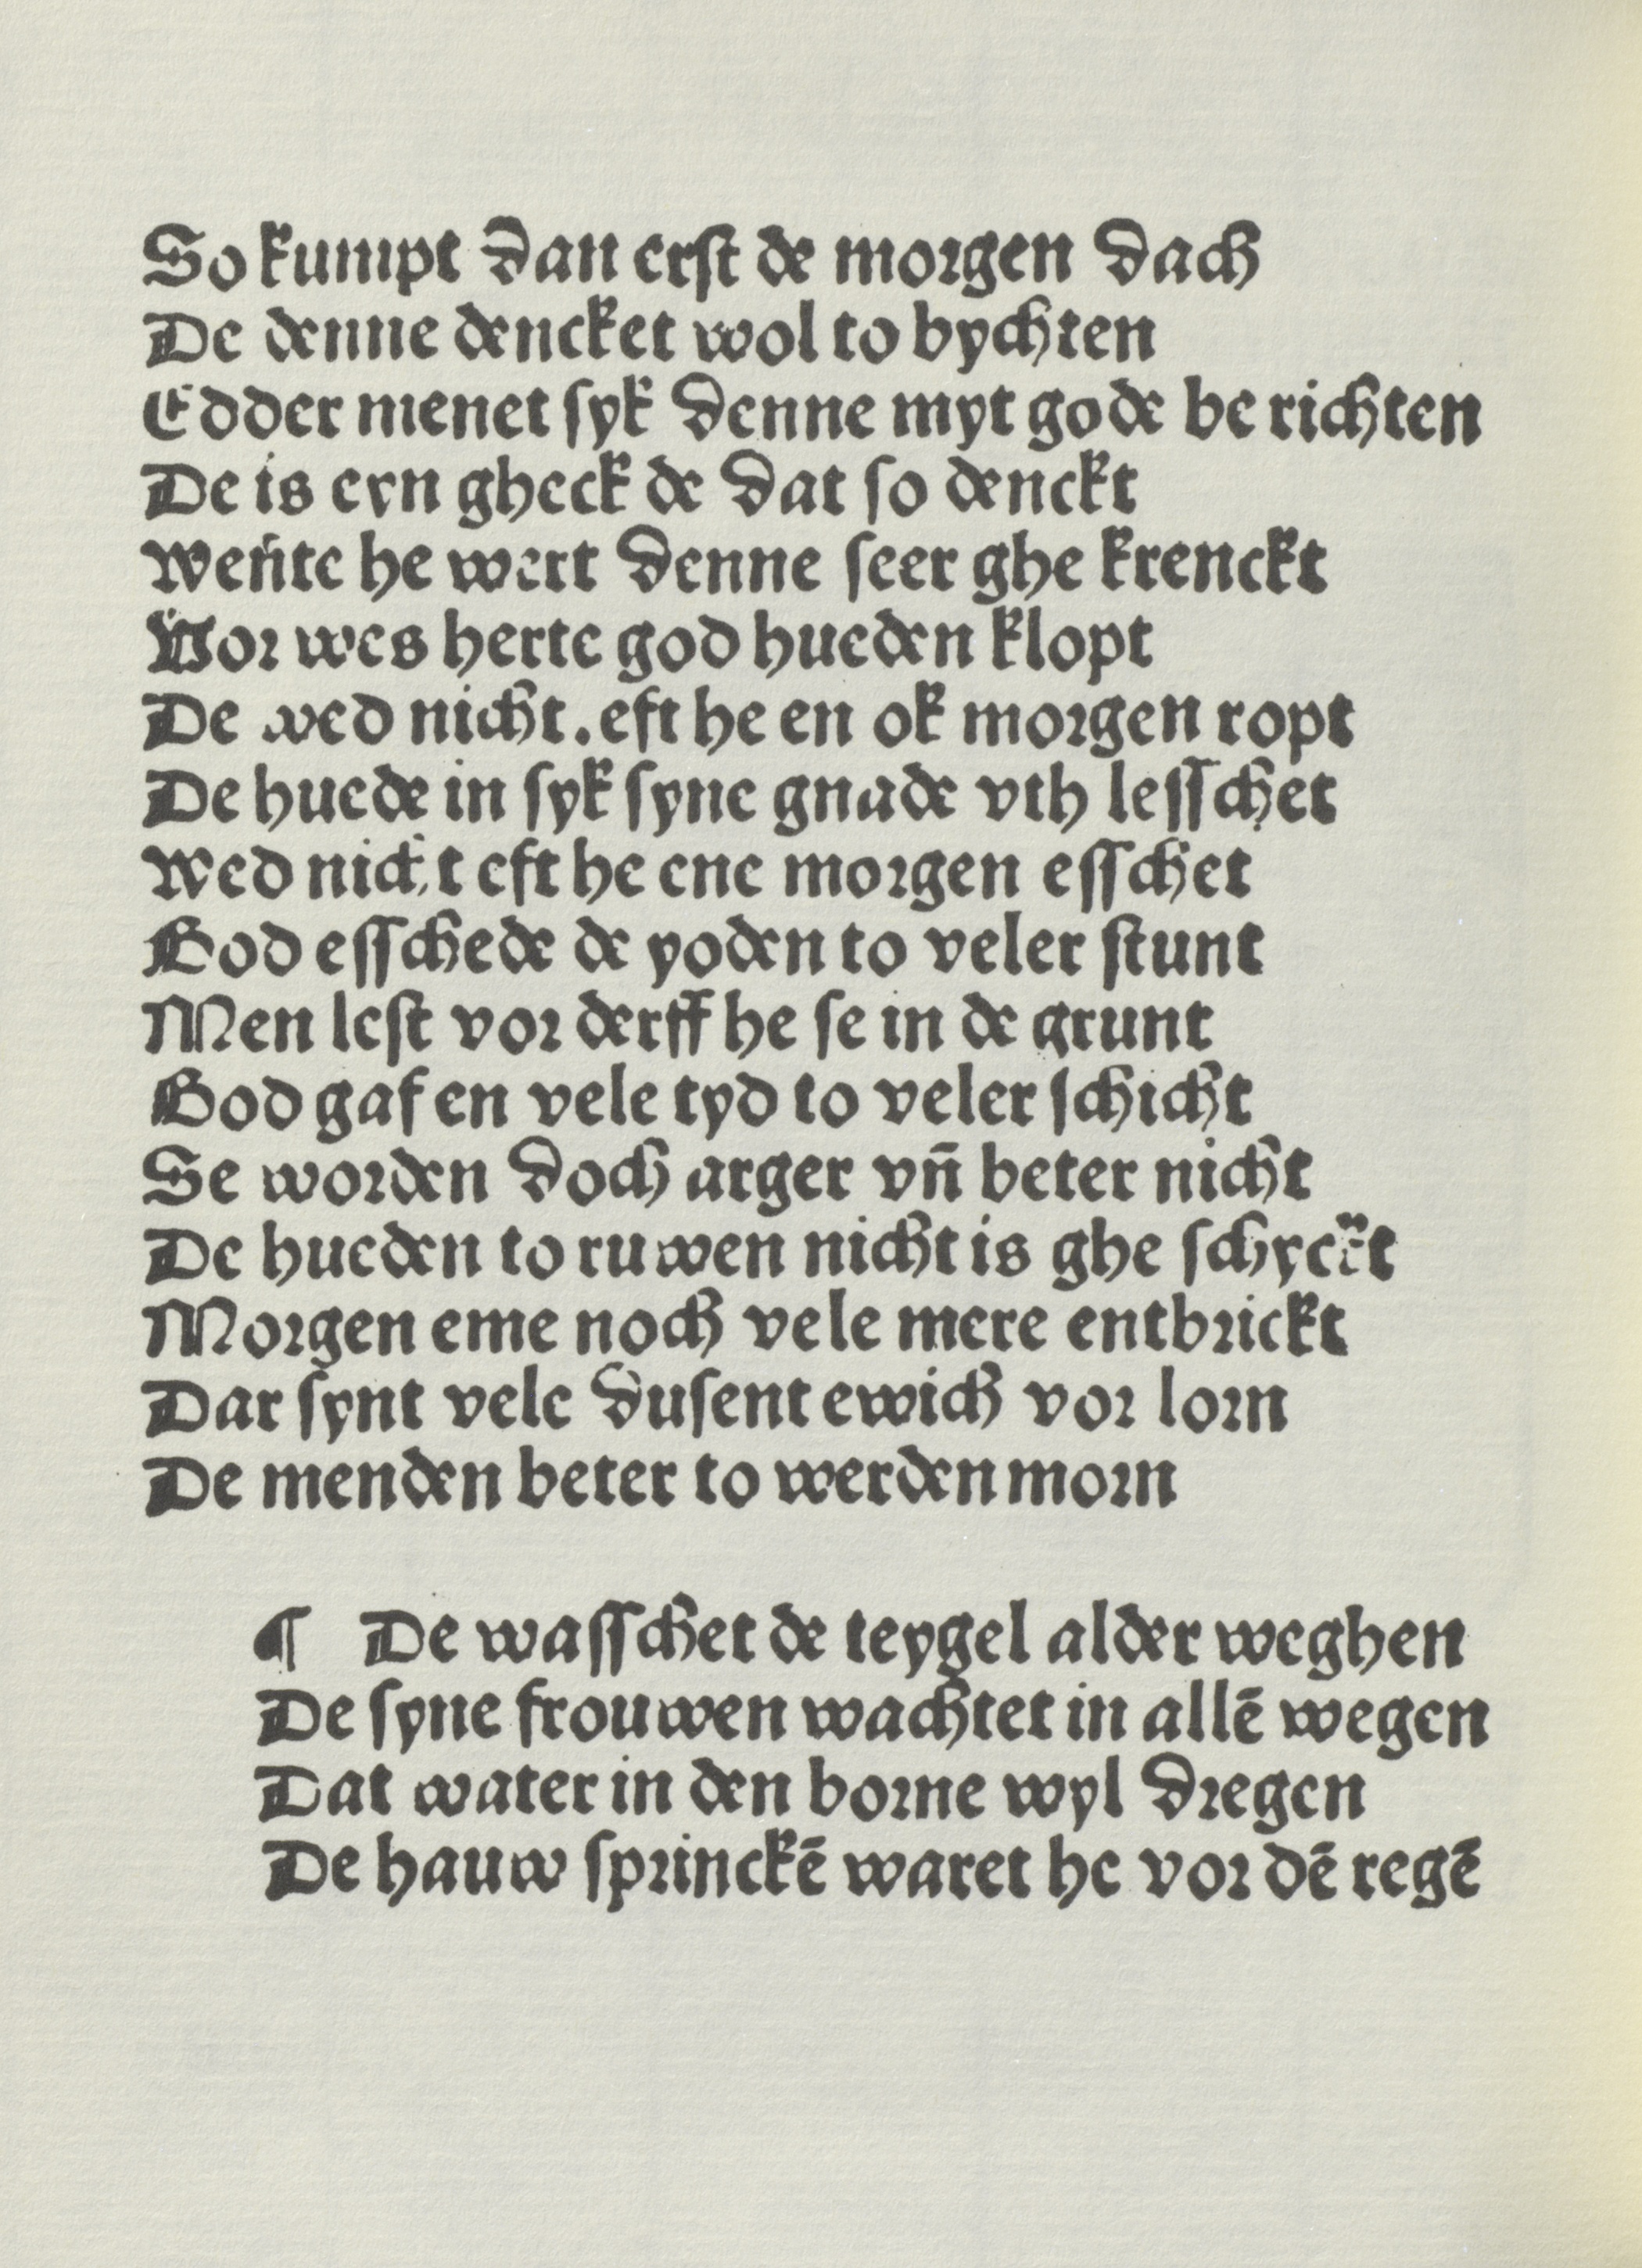 So kumpt dan erst de morgen dach
De denne dencket wol to bychten
Edder menet syk denne myt gode be richten
De is eyn gheck de dat so denckt
Wente he wert denne seer ghe krenckt
Vor wes herte god hueden klopt
De wed nicht. eft he en ok morgen ropt
De huede in syk syne gnade vth lesschet
Wed nicht eft he ene morgen esschet
God esschede de yoden to veler stunt
Men lest vor derff he se in de grunt
God gaf en vele tyd to veler schicht
Se worden doch arger vn̄ beter nicht
De hueden to ruwen nicht is ghe schyckt
Morgen eme noch vele mere entbrickt
Dar synt vele dusent ewich vor lorn
De menden beter to werden morn
¶ De wasschet de teygel alder weghen
De syne frouwen wachtet in allē wegen
Dat water in den borne wyl dregen
De hauw sprinckē waret he vor dē regē